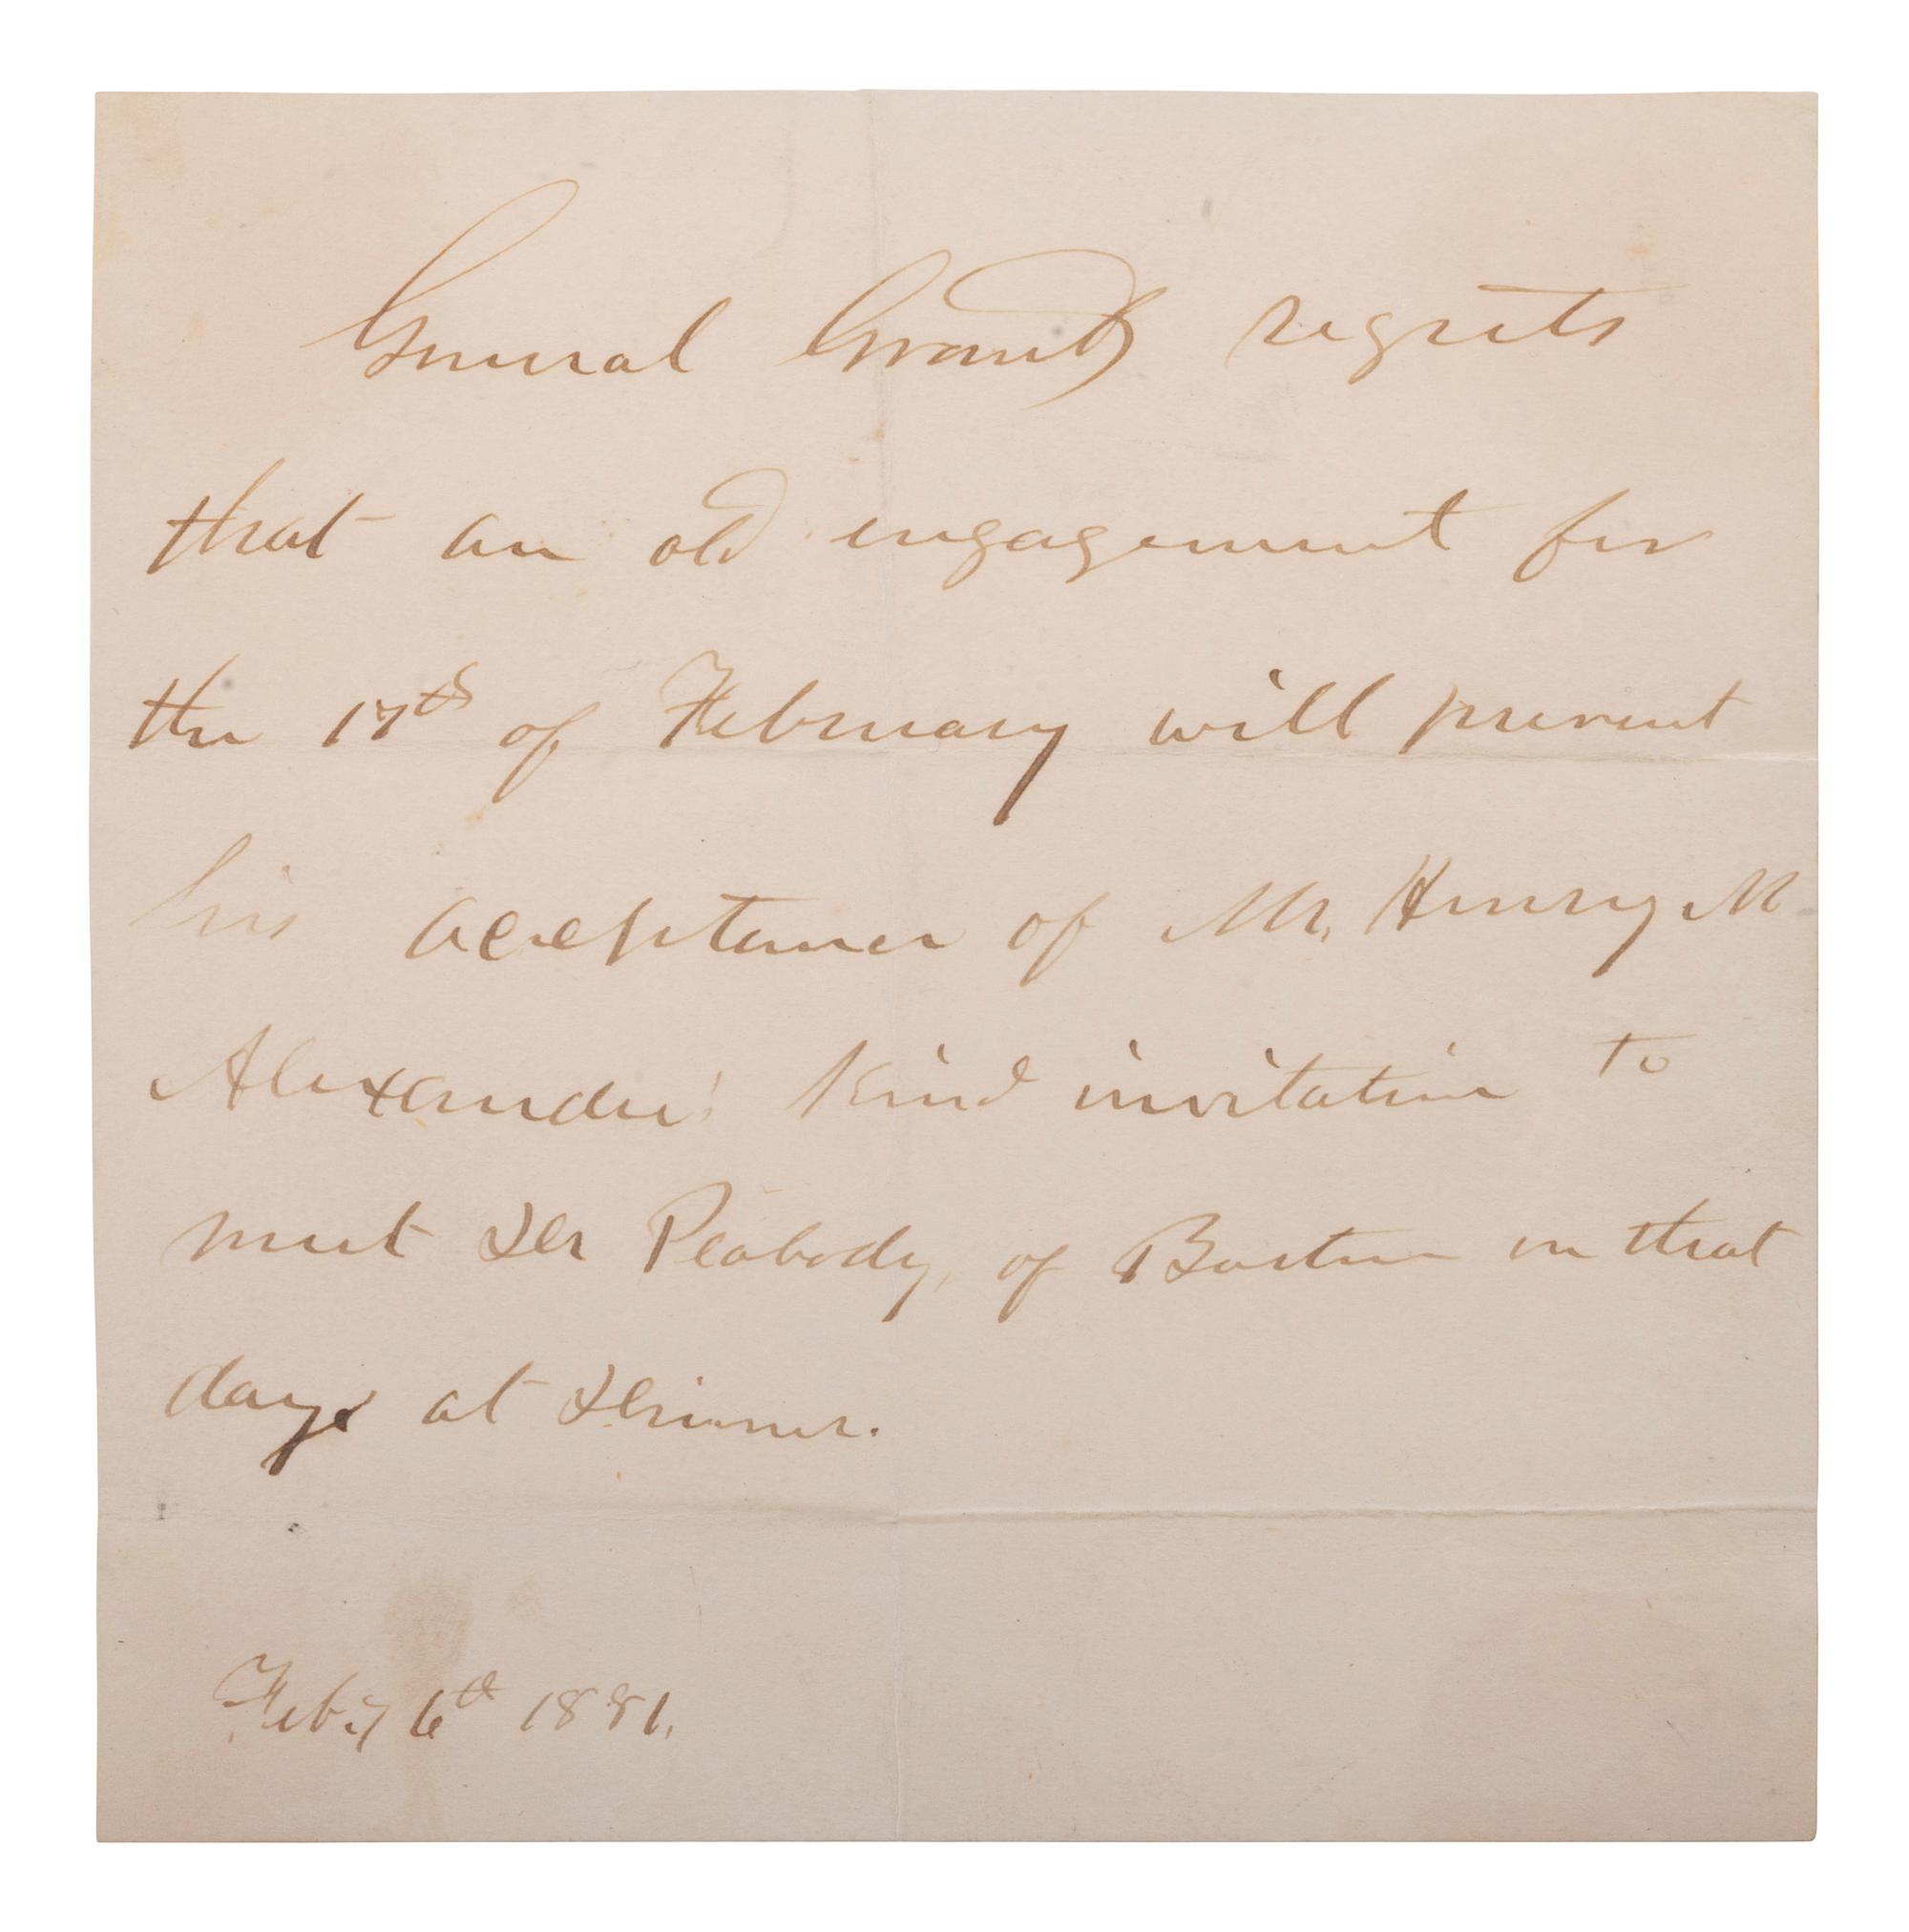 General Grant regrets
that an old engagement for
the 17th of February will prevent
his acceptance of Mr. Henry M
Alexander' kind invitation to
meet Dr Peabody, of Boston on that
day at dinner.
Feb.y 6th 1881.